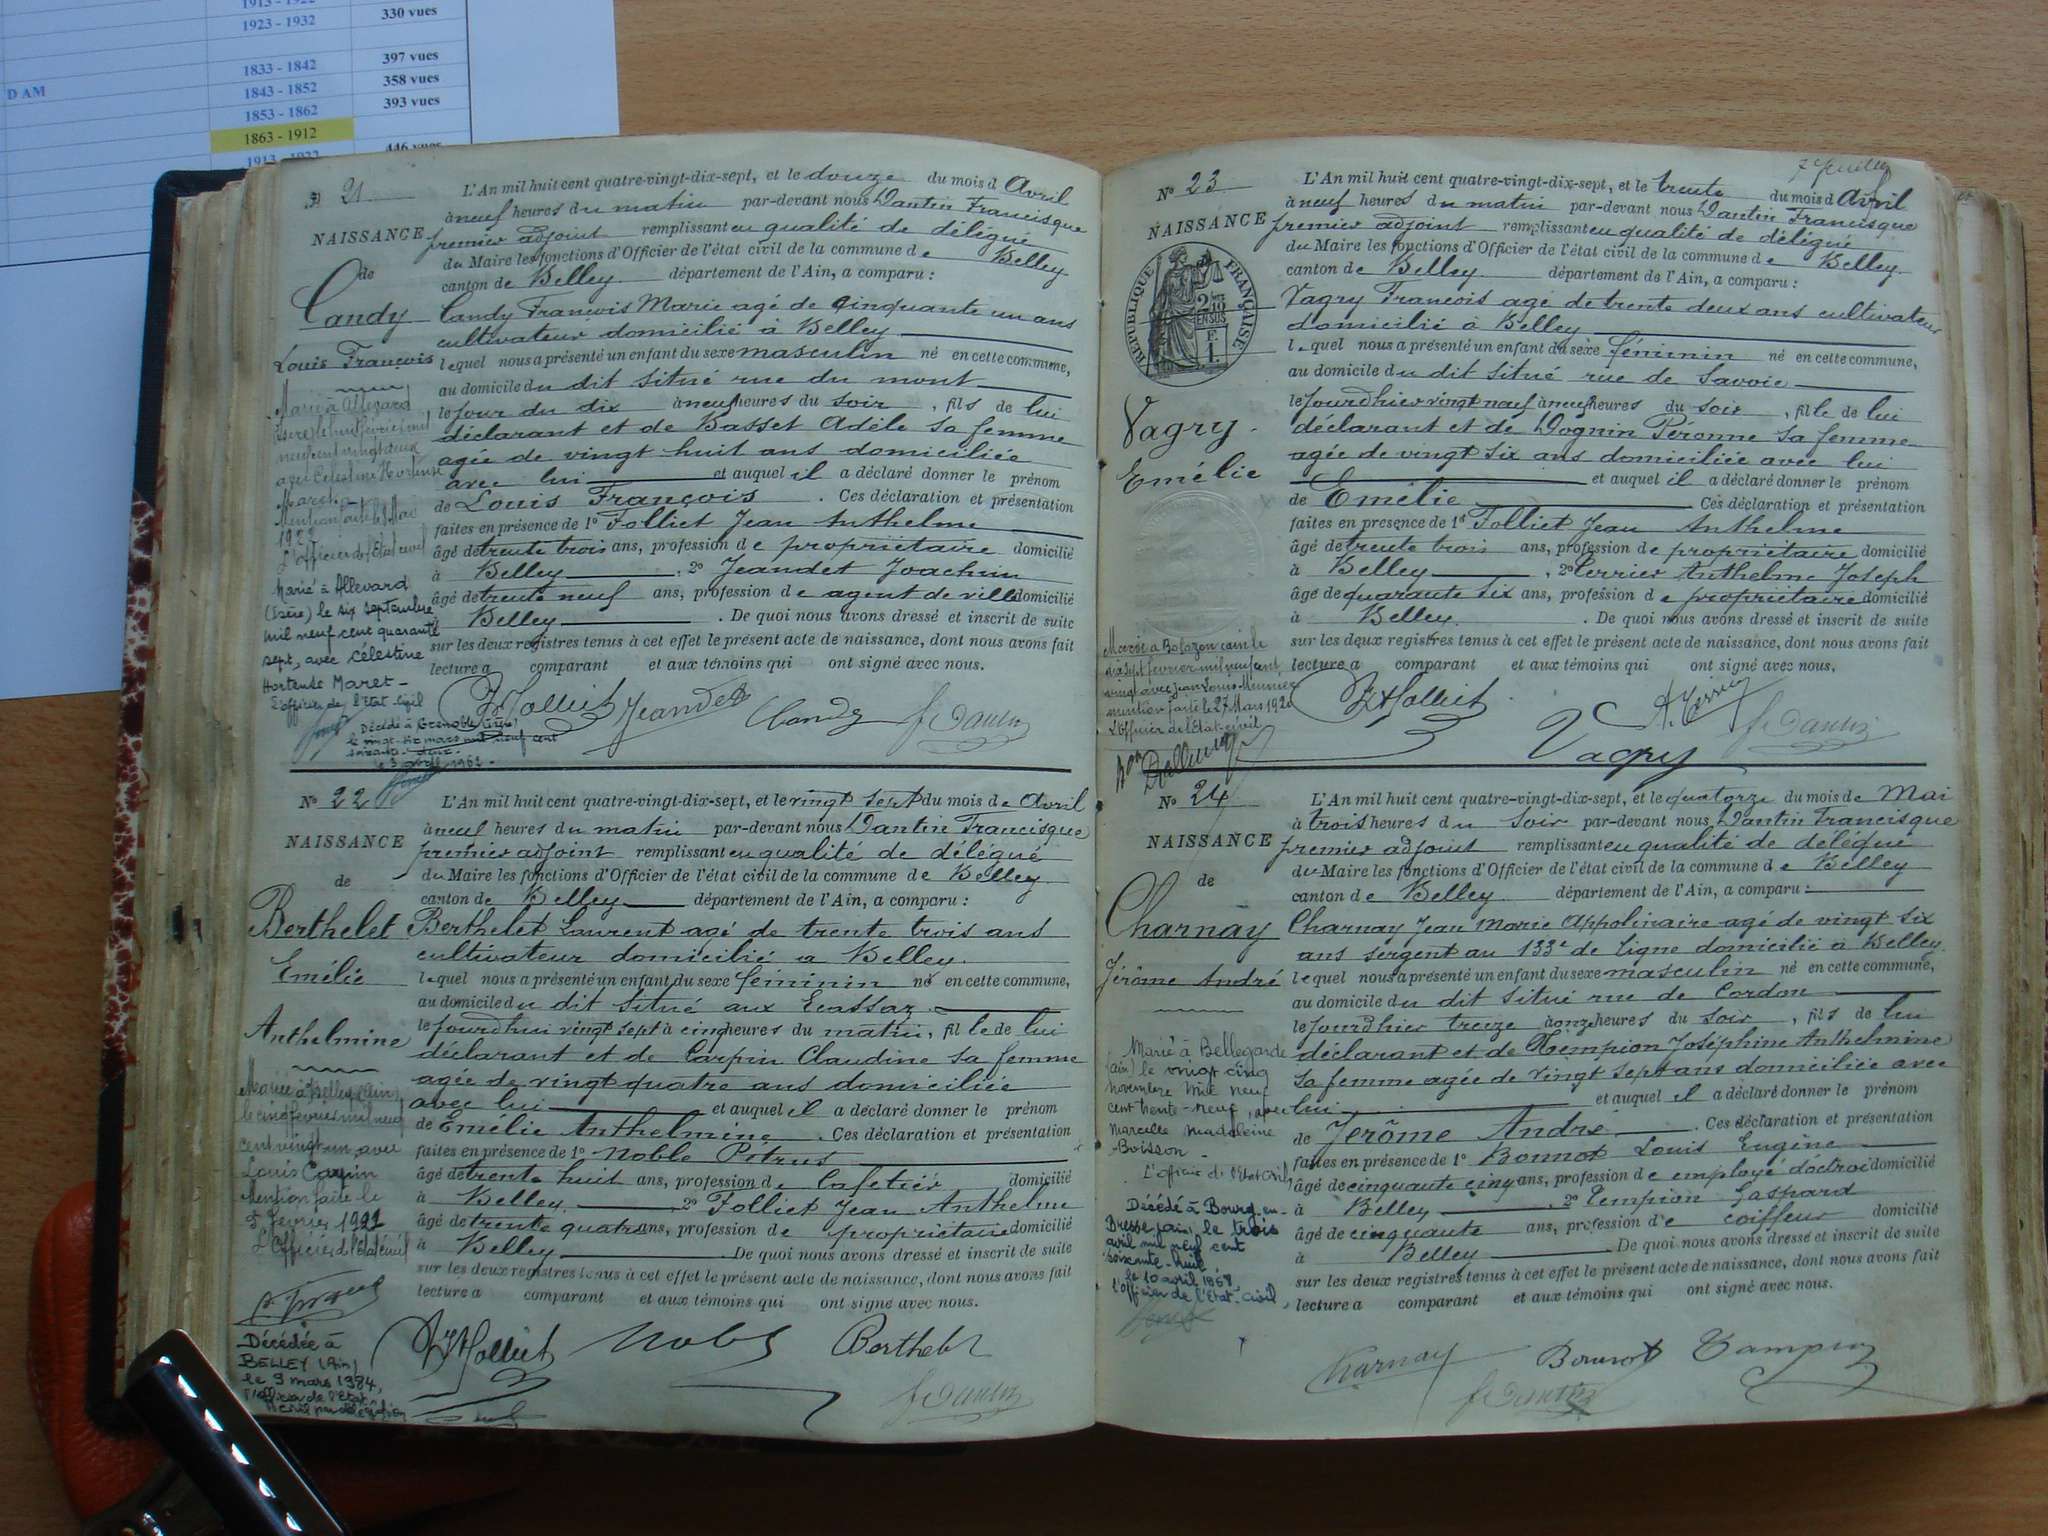 1913 - 1922
1923 - 1932 330 vues
1833 - 1842 397 vues
D AM 1843 - 1852 358 vues
1853 - 1862 393 vues
1863 - 1912
1913 - 1922 446 vues
21
L'An mil huit cent quatre-vingt-dix-sept, et le douze du mois d Avril
à neuf heures du matin par-devant nous Dantin Francisque
NAISSANCE
premier adjoint remplissant en qualité de délégué
du Maire les fonctions d'Officier de l'état civil de la commune de Belley
de
canton de Belley département de l'Ain, a comparu :
Candy
Candy François Marie agé de cinquante un ans
cultivateur domicilié à Belley
Louis François
lequel nous a présenté un enfant du sexe masculin né en cette commune,
au domicile du dit situé rue du mont
le jour du dix à neuf heures du soir, fils de lui
déclarant et de Basset Adèle sa femme
agée de vingt huit ans domiciliée
avec lui et auquel il a déclaré donner le prénom
de Louis François. Ces déclaration et présentation
faites en présence de 1° Folliet Jean Anthelme
âgé de trente trois ans, profession de propriétaire domicilié
à Belley, 2° Jeandet Joachim
âgé de trente neuf ans, profession de agent de ville domicilié
à Belley. De quoi nous avons dressé et inscrit de suite
sur les deux registres tenus à cet effet le présent acte de naissance, dont nous avons fait
lecture a comparant et aux témoins qui ont signé avec nous.
Marié à Allevard
(Isère) le huit février mil
neuf cent vingt deux
avec Célestine Hortense
Maret
Mention faite le Mai
L'officier de l'Etat civil
Marié à Allevard
(Isère) le six septembre
mil neuf cent quarante
sept, avec Célestine
Hortense Maret -
L'officier de l'Etat Civil
Décédé à Grenoble (Isère)
le vingt-six mars mil neuf cent
soixante-deux.
le 3 avril 1962 -
JAFolliet Jeandet Candy f. Dantin
N° 22
L'An mil huit cent quatre-vingt-dix-sept, et le vingt sept du mois de Avril
à neuf heures du matin par-devant nous Dantin Francisque
NAISSANCE
premier adjoint remplissant en qualité de délégué
du Maire les fonctions d'Officier de l'état civil de la commune de Belley
de
canton de Belley département de l'Ain, a comparu :
Berthelet
Berthelet Laurent agé de trente trois ans
cultivateur domicilié a Belley.
Emélie
lequel nous a présenté un enfant du sexe féminin né en cette commune,
au domicile du dit situé aux Ecassaz
Anthelmine
le jourdhui vingt sept à cinq heures du matin, fille de lui
déclarant et de Carpin Claudine sa femme
agée de vingt quatre ans domiciliée
avec lui et auquel il a déclaré donner le prénom
de Emélie Anthelmine. Ces déclaration et présentation
faites en présence de 1° Noble Pétrus
âgé de trente huit ans, profession de Cafetier domicilié
à Belley. 2° Folliet Jean Anthelme
âgé de trente quatre ans, profession de propriétaire domicilié
à Belley. De quoi nous avons dressé et inscrit de suite
sur les deux registres tenus à cet effet le présent acte de naissance, dont nous avons fait
lecture a comparant et aux témoins qui ont signé avec nous.
Mariée à Belley (Ain)
le cinq février mil neuf
cent vingt un, avec
Louis
Mention faite le
5 février 1921
L'Officier de l'état civil
Décédée à
BELLEY (Ain)
le 9 mars 1984,
l'officier de l'Etat
Civil par délégation
JAFolliet Noble Berthelet
f. Dantin
7 feuillet
N° 23
L'An mil huit cent quatre-vingt-dix-sept, et le trente du mois d Avril
à neuf heures du matin par-devant nous Dantin Francisque
NAISSANCE
premier adjoint remplissant en qualité de délégué
du Maire les fonctions d'Officier de l'état civil de la commune de Belley
canton de Belley département de l'Ain, a comparu :
RÉPUBLIQUE FRANÇAISE
Vagry François agé de trente deux ans cultivateur
domicilié à Belley
lequel nous a présenté un enfant du sexe féminin né en cette commune,
au domicile du dit situé rue de Savoie
Vagry
Emélie
le jourdhier vingt neuf à neuf heures du soir, fille de lui
déclarant et de Dognin Péronne sa femme
agée de vingt six ans domiciliée avec lui
et auquel il a déclaré donner le prénom
de Emélie Ces déclaration et présentation
faites en présence de 1° Folliet Jean Anthelme
âgé de trente trois ans, profession de propriétaire domicilié
à Belley, 2° Perrier Anthelme Joseph
âgé de quarante six ans, profession de propriétaire domicilié
à Belley. De quoi nous avons dressé et inscrit de suite
sur les deux registres tenus à cet effet le présent acte de naissance, dont nous avons fait
lecture a comparant et aux témoins qui ont signé avec nous.
Mariée à Bolozon (ain) le
dix sept février mil neuf cent
vingt avec Jean Louis Meunier
mention faite le 27 Mars 1920
L'Officier de l'état-civil
JAFolliet Vagry f. Dantin
N° 24
L'An mil huit cent quatre-vingt-dix-sept, et le quatorze du mois de Mai
à trois heures du soir par-devant nous Dantin Francisque
NAISSANCE
premier adjoint remplissant en qualité de délégué
du Maire les fonctions d'Officier de l'état civil de la commune de Belley
de
canton de Belley. département de l'Ain, a comparu :
Charnay
Charnay Jean Marie Appolinaire agé de vingt six
ans sergent au 133e de Ligne domicilié à Belley.
Jérôme André
lequel nous a présenté un enfant du sexe masculin né en cette commune,
au domicile du dit situé rue de Cordon
le jourdhier treize à onze heures du soir, fils de lui
déclarant et de Tempion Joséphine Anthelmine
sa femme agée de vingt sept ans domiciliée avec
lui et auquel il a déclaré donner le prénom
de Jérôme André. Ces déclaration et présentation
faites en présence de 1° Bonnot Louis Eugène
âgé de cinquante cinq ans, profession de employé d'octroi domicilié
à Belley, 2° Tempion Gaspard
âgé de cinquante ans, profession de coiffeur domicilié
à Belley. De quoi nous avons dressé et inscrit de suite
sur les deux registres tenus à cet effet le présent acte de naissance, dont nous avons fait
lecture a comparant et aux témoins qui ont signé avec nous.
Marié à Bellegarde
(ain) le vingt cinq
novembre mil neuf
cent trente-neuf, avec
Marcelle Madeleine
Boisson -
L'officier de l'Etat Civil,
Décédé à Bourg-en-
Bresse (ain) le trois
avril mil neuf cent
soixante-huit,
le 10 avril 1968
l'officier de l'Etat-Civil,
Charnay Bonnot Tampion
f. Dantin